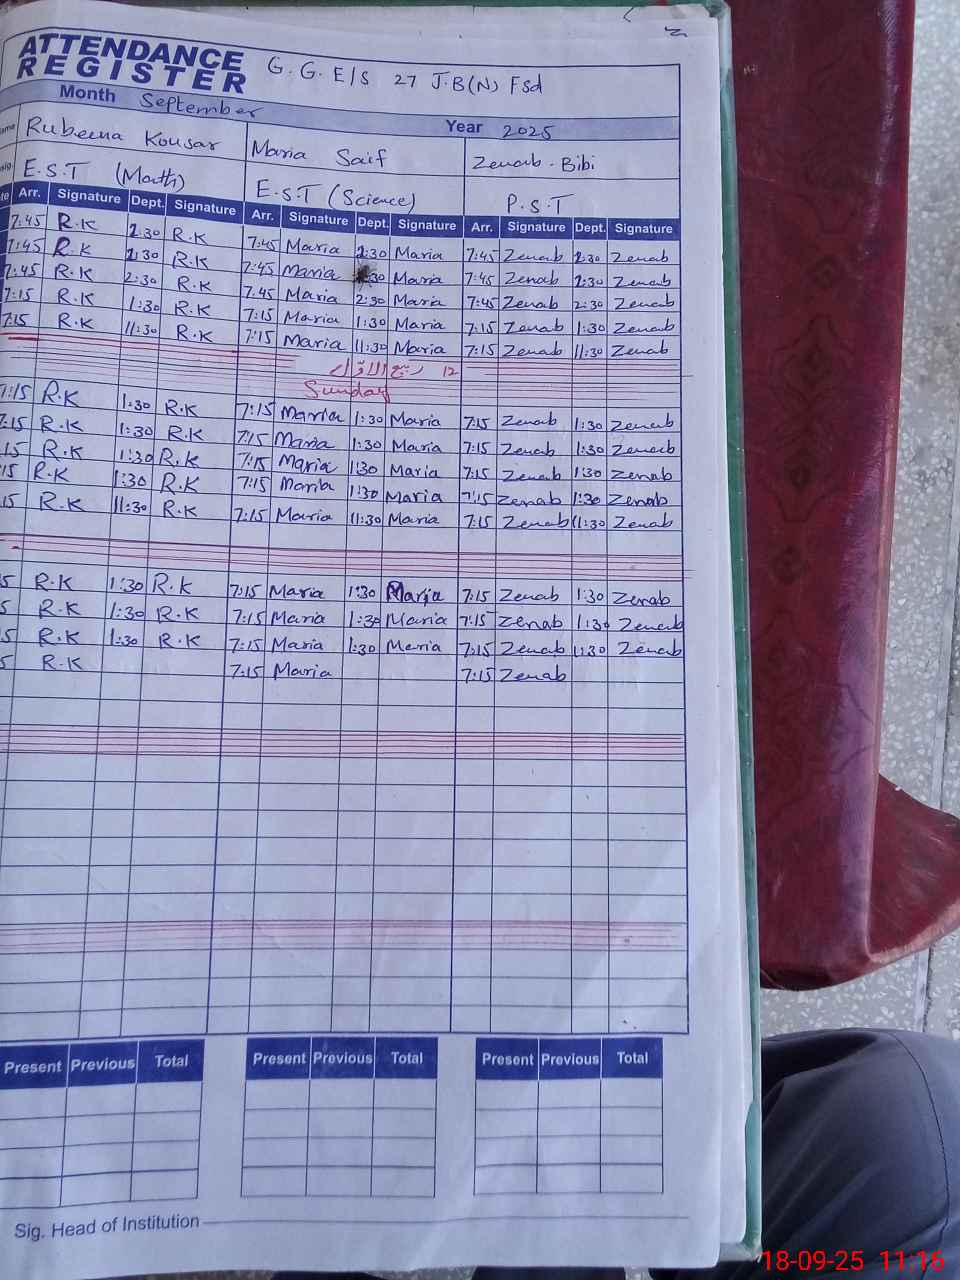 ATTENDANCE REGISTER G.G.E/S 27 J.B(N) Fsd
Month September Year 2025
Rubeena Kousar Maria Saif Zenab-Bibi
E.S.T (Math) E.S.T (Science) P.S.T
Arr. Signature Dept. Signature Arr. Signature Dept. Signature Arr. Signature Dept. Signature
7:45 R.K 2:30 R.K 7:45 Maria 2:30 Maria 7:45 Zenab 2:30 Zenab
7:45 R.K 2:30 R.K 7:45 Maria :30 Maria 7:45 Zenab 2:30 Zenab
7:45 R.K 2:30 R.K 7:45 Maria 2:30 Maria 7:45 Zenab 2:30 Zenab
7:15 R.K 1:30 R.K 7:15 Maria 1:30 Maria 7:15 Zenab 1:30 Zenab
7:15 R.K 11:30 R.K 7:15 Maria 11:30 Maria 7:15 Zenab 11:30 Zenab
12 ربیع الاول
Sunday
7:15 R.K 1:30 R.K 7:15 Maria 1:30 Maria 7:15 Zenab 1:30 Zenab
7:15 R.K 1:30 R.K 7:15 Maria 1:30 Maria 7:15 Zenab 1:30 Zenab
:15 R.K 1:30 R.K 7:15 Maria 1:30 Maria 7:15 Zenab 1:30 Zenab
15 R.K 1:30 R.K 7:15 Maria 1:30 Maria 7:15 Zenab 1:30 Zenab
15 R.K 11:30 R.K 7:15 Maria 11:30 Maria 7:15 Zenab 11:30 Zenab
5 R.K 1:30 R.K 7:15 Maria 1:30 Maria 7:15 Zenab 1:30 Zenab
5 R.K 1:30 R.K 7:15 Maria 1:30 Maria 7:15 Zenab 1:30 Zenab
5 R.K 1:30 R.K 7:15 Maria 1:30 Maria 7:15 Zenab 1:30 Zenab
5 R.K 7:15 Maria 7:15 Zenab
Present Previous Total Present Previous Total Present Previous Total
Sig. Head of Institution
18-09-25 11:16